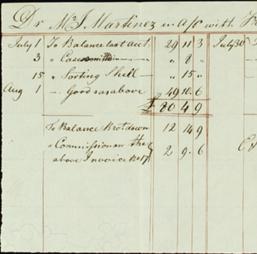 Dr Mr J. Martinez in A/C with
July 1 To Balance last Acct 29 11 3 July 30
3 " 8 "
15 " Sorting Shell — " 15 "
Aug 1 — Goods as above 49 10 6
£ 80 4 9
To Balance Brot down 12 14 9
" Commission on the
above Invoice 2 9 6